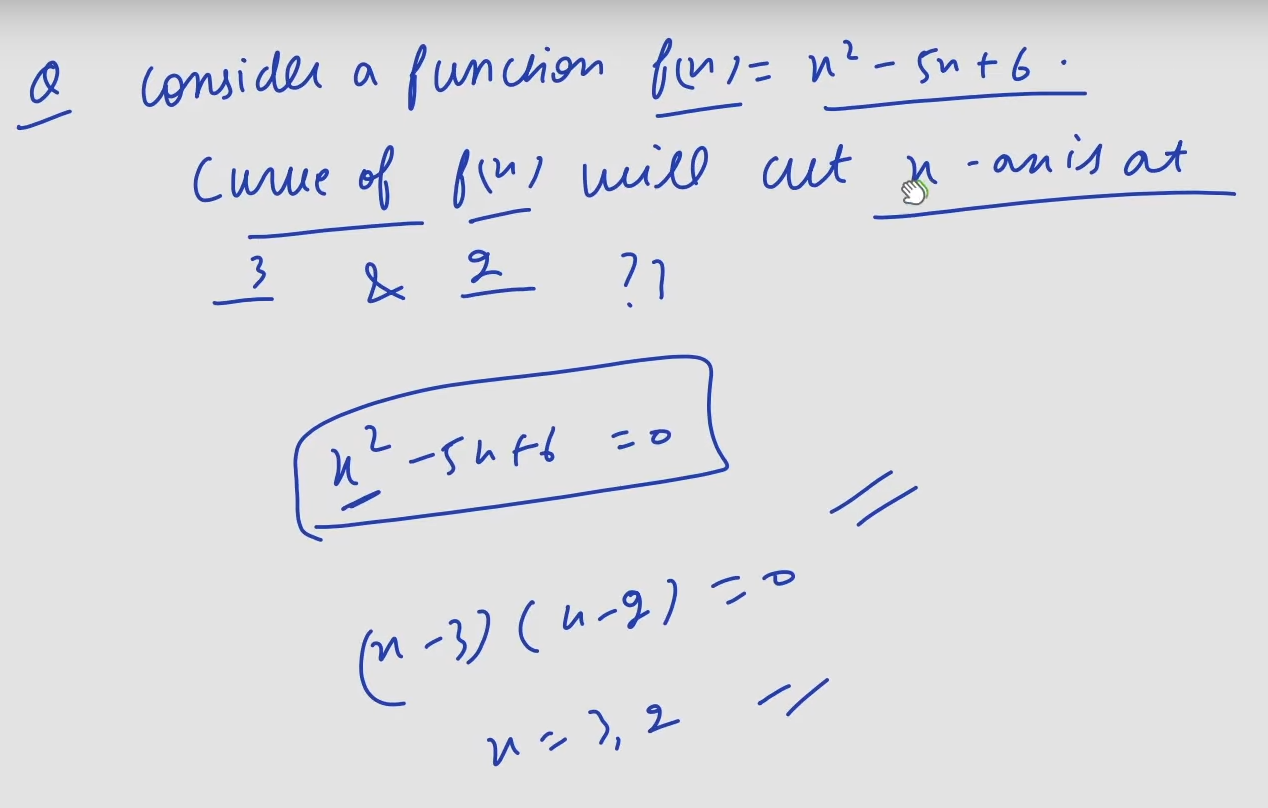 Q Consider a function f(x) = x² - 5x + 6 .
Curve of f(x) will cut x - axis at
3 & 2 ??
x² - 5x + 6 = 0
(x - 3) ( x - 2) = 0
x = 3, 2